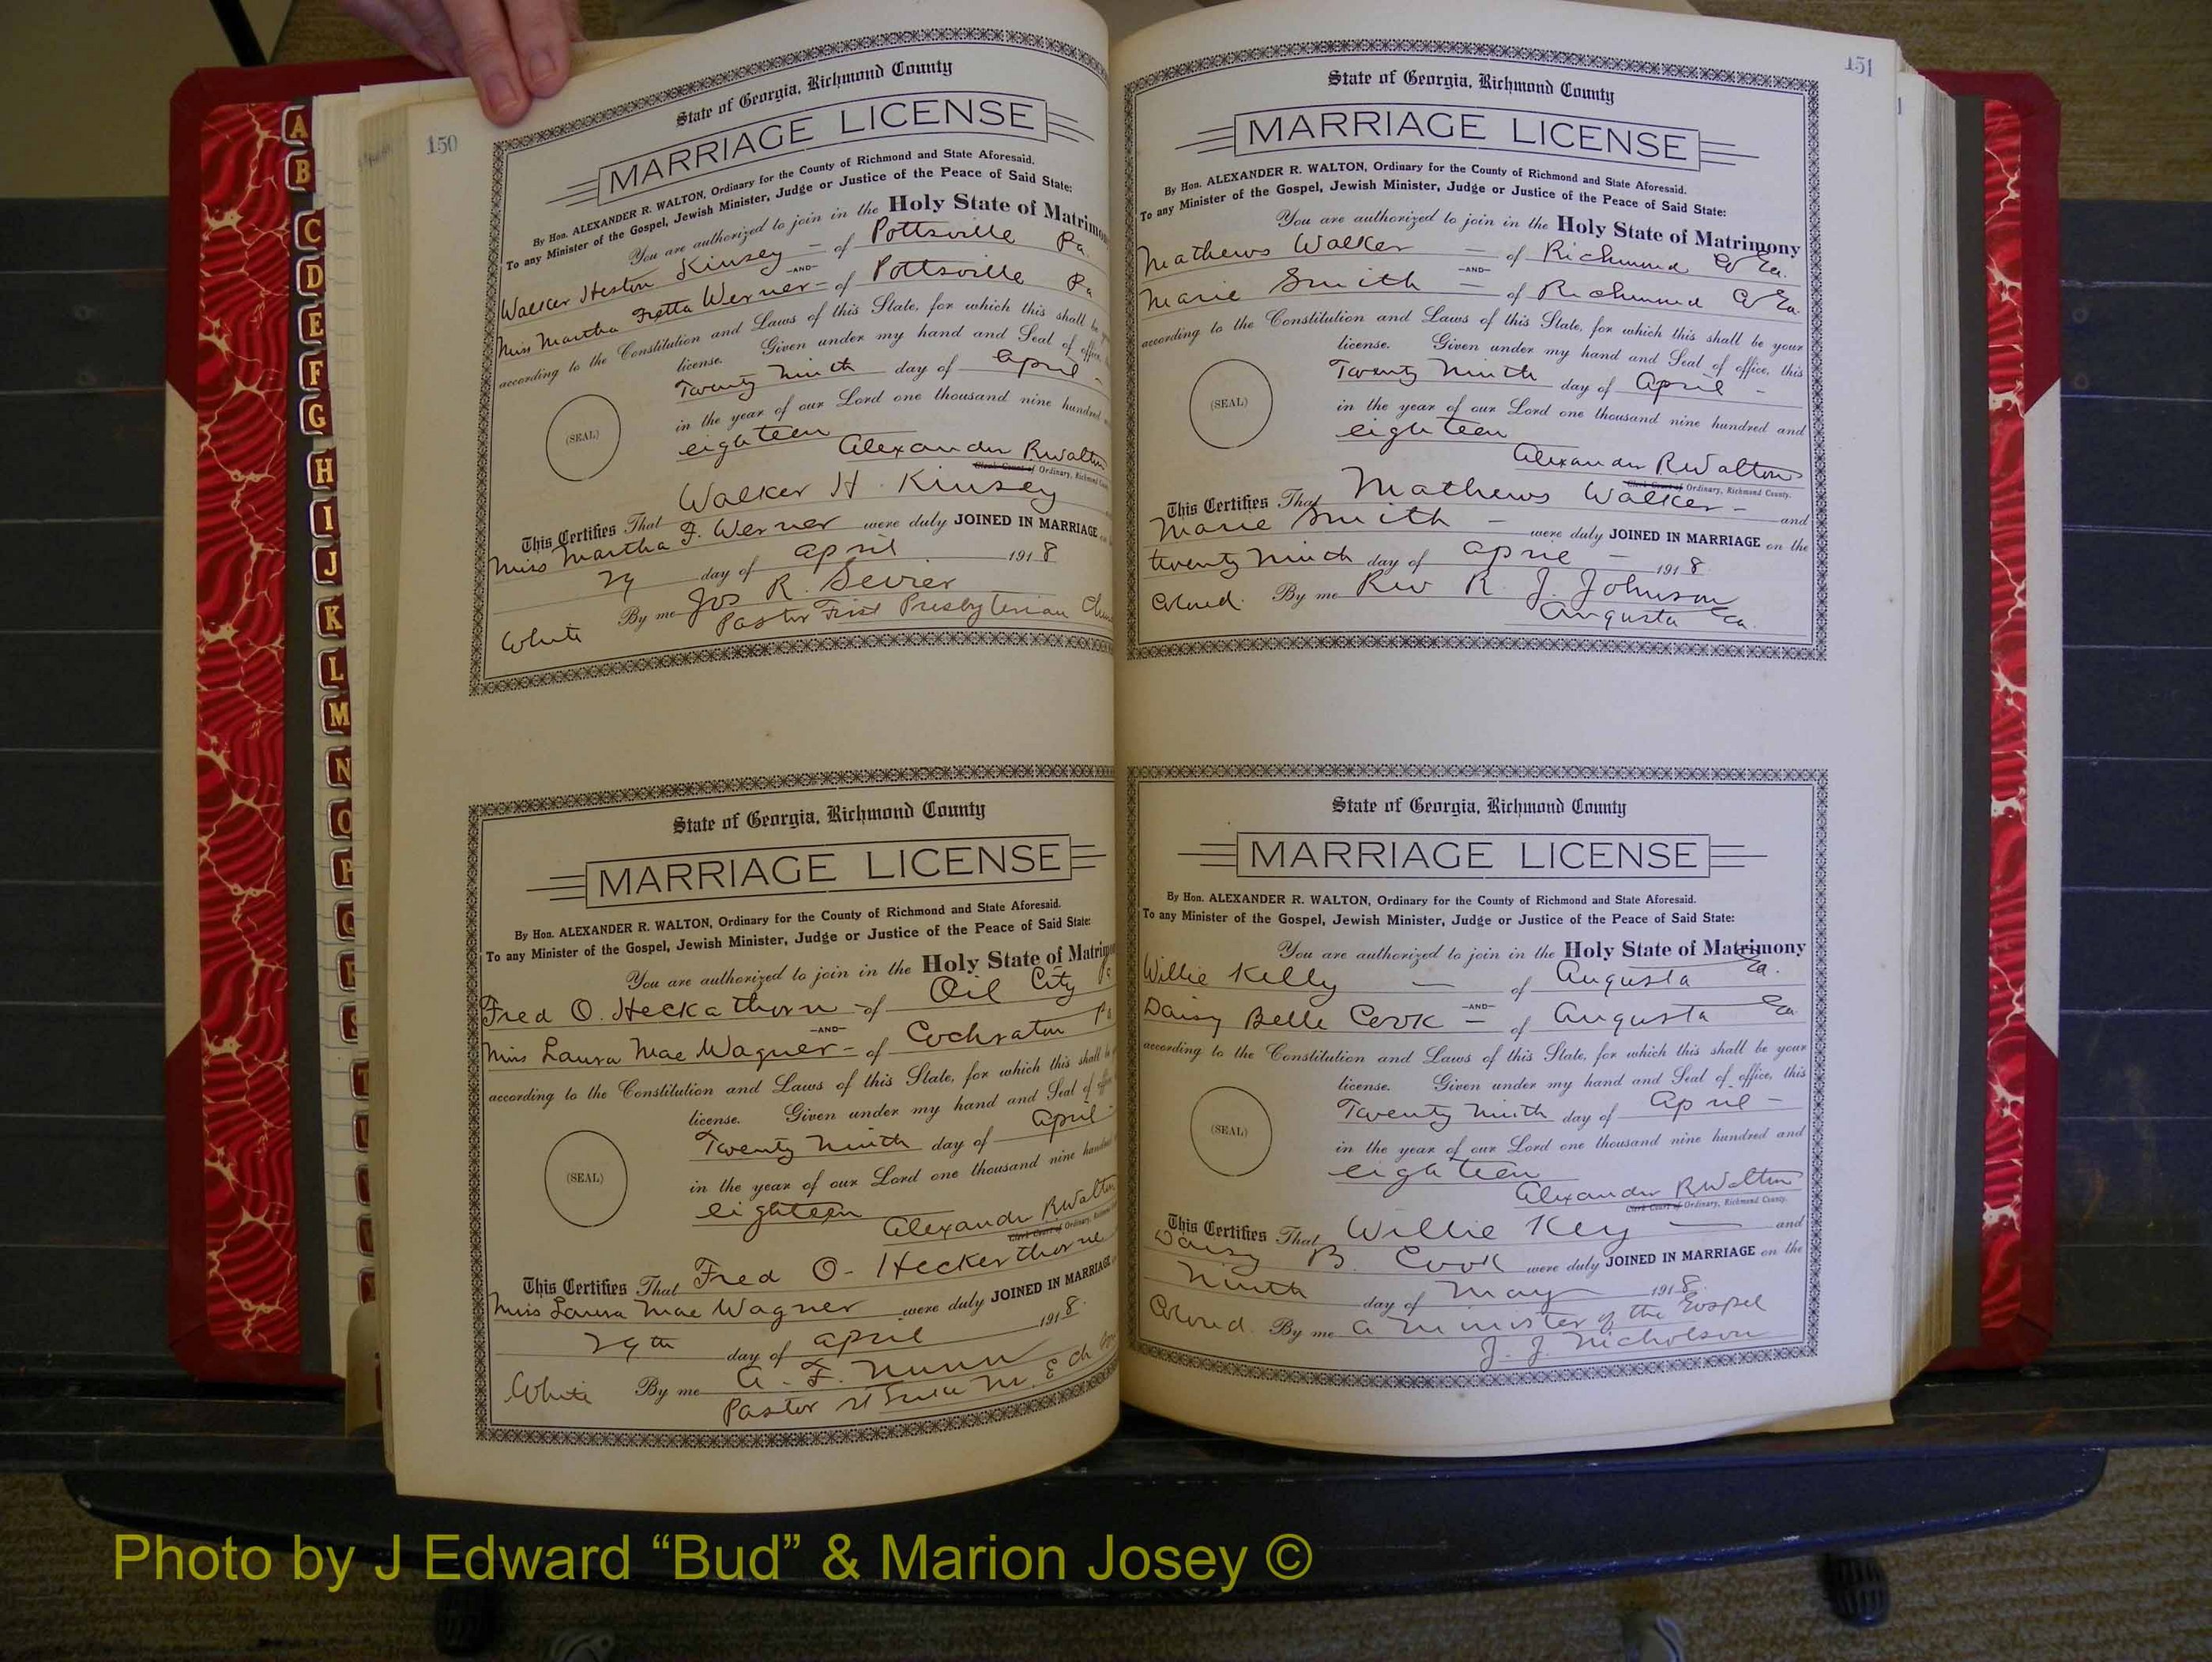 150
State of Georgia, Richmond County
MARRIAGE LICENSE
By Hon. ALEXANDER R. WALTON, Ordinary for the County of Richmond and State Aforesaid.
To any Minister of the Gospel, Jewish Minister, Judge or Justice of the Peace of Said State:
You are authorized to join in the Holy State of Matrimon
Walker Heston Kinsey - of Pottsville Pa.
-AND-
Miss Martha Fretta Werner - of Pottsville Pa
according to the Constitution and Laws of this State, for which this shall be
license. Given under my hand and Seal of office,
Twenty Ninth day of April -
(SEAL)
in the year of our Lord one thousand nine hundred
eighteen
Alexander R Walton
Clerk Court of Ordinary, Richmond County
This Certifies That Walker H. Kinsey
Miss Martha F. Werner were duly JOINED IN MARRIAGE
29 day of April 1918
By me Jos R. Sevier
White Pastor First Presbyterian
State of Georgia, Richmond County
MARRIAGE LICENSE
By Hon. ALEXANDER R. WALTON, Ordinary for the County of Richmond and State Aforesaid.
To any Minister of the Gospel, Jewish Minister, Judge or Justice of the Peace of Said State:
You are authorized to join in the Holy State of Matrimon
Fred O. Heckathorn - of Oil City Pa
-AND-
Miss Laura Mae Wagner - of Cochraton Pa
according to the Constitution and Laws of this State, for which this shall be
license. Given under my hand and Seal of office
Twenty Ninth day of April -
(SEAL)
in the year of our Lord one thousand nine hundred
eighteen
Alexander R Walton
Clerk Court of Ordinary, Richmond
This Certifies That Fred O. Heckerthorne
Miss Laura Mae Wagner were duly JOINED IN MARRIAGE
29th day of April 1918.
By me A. F. Nunn
White Pastor M. E Ch
151
State of Georgia, Richmond County
MARRIAGE LICENSE
By Hon. ALEXANDER R. WALTON, Ordinary for the County of Richmond and State Aforesaid.
To any Minister of the Gospel, Jewish Minister, Judge or Justice of the Peace of Said State:
You are authorized to join in the Holy State of Matrimony
Mathews Walker - of Richmond Co Ga.
-AND-
Marie Smith - of Richmond Co Ga.
according to the Constitution and Laws of this State, for which this shall be your
license. Given under my hand and Seal of office, this
Twenty Ninth day of April -
(SEAL)
in the year of our Lord one thousand nine hundred and
eighteen
Alexander R Walton
Clerk Court of Ordinary, Richmond County.
This Certifies That Mathews Walker - and
Marie Smith - were duly JOINED IN MARRIAGE on the
twenty Ninth day of April - 1918.
Colored. By me Rev R. J. Johnson
Augusta Ga.
State of Georgia, Richmond County
MARRIAGE LICENSE
By Hon. ALEXANDER R. WALTON, Ordinary for the County of Richmond and State Aforesaid.
To any Minister of the Gospel, Jewish Minister, Judge or Justice of the Peace of Said State:
You are authorized to join in the Holy State of Matrimony
Willie Kelly - of Augusta Ga.
-AND-
Daisy Belle Cook - of Augusta Ga.
according to the Constitution and Laws of this State, for which this shall be your
license. Given under my hand and Seal of office, this
Twenty Ninth day of April -
(SEAL)
in the year of our Lord one thousand nine hundred and
eighteen
Alexander R Walton
Clerk Court of Ordinary, Richmond County.
This Certifies That Willie Key - and
Daisy B. Cook were duly JOINED IN MARRIAGE on the
Ninth day of May 1918.
Colored. By me A Minister of the Gospel
J. J. Nicholson
A
B
C
D
E
F
G
H
I
J
K
L
M
N
O
P
Q
R
S
T
Photo by J Edward “Bud” & Marion Josey ©